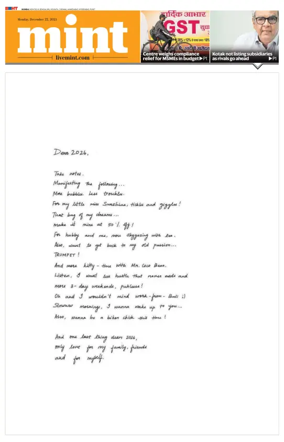 mint
Monday, December 22, 2025
mint
livemint.com
आर्थिक आधार
GST
Centre weighs compliance
relief for MSMEs in budget ▸P1
Kotak not listing subsidiaries
as rivals go ahead ▸P1
Dear 2026,
Take notes.
Manifesting the following...
More bubbles less trouble.
For my little miss Sunshine, tickles and giggles!
That bag of my dreams...
make it mine at 50% off!
For hubby and me, more staggering with Leo.
Also, want to get back to my old passion...
TRUMPET!
And more kitty-time with Mr. Leo Bean.
Listen, I want less hustle that names made and
more 3-day weekends, puhleaze!
Oh and I wouldn't mind work-from-Bali :)
Slower mornings, I wanna wake up to you...
Also, wanna be a biker chick set time!
And one last thing dear 2026,
only love for my family, friends
and for myself.